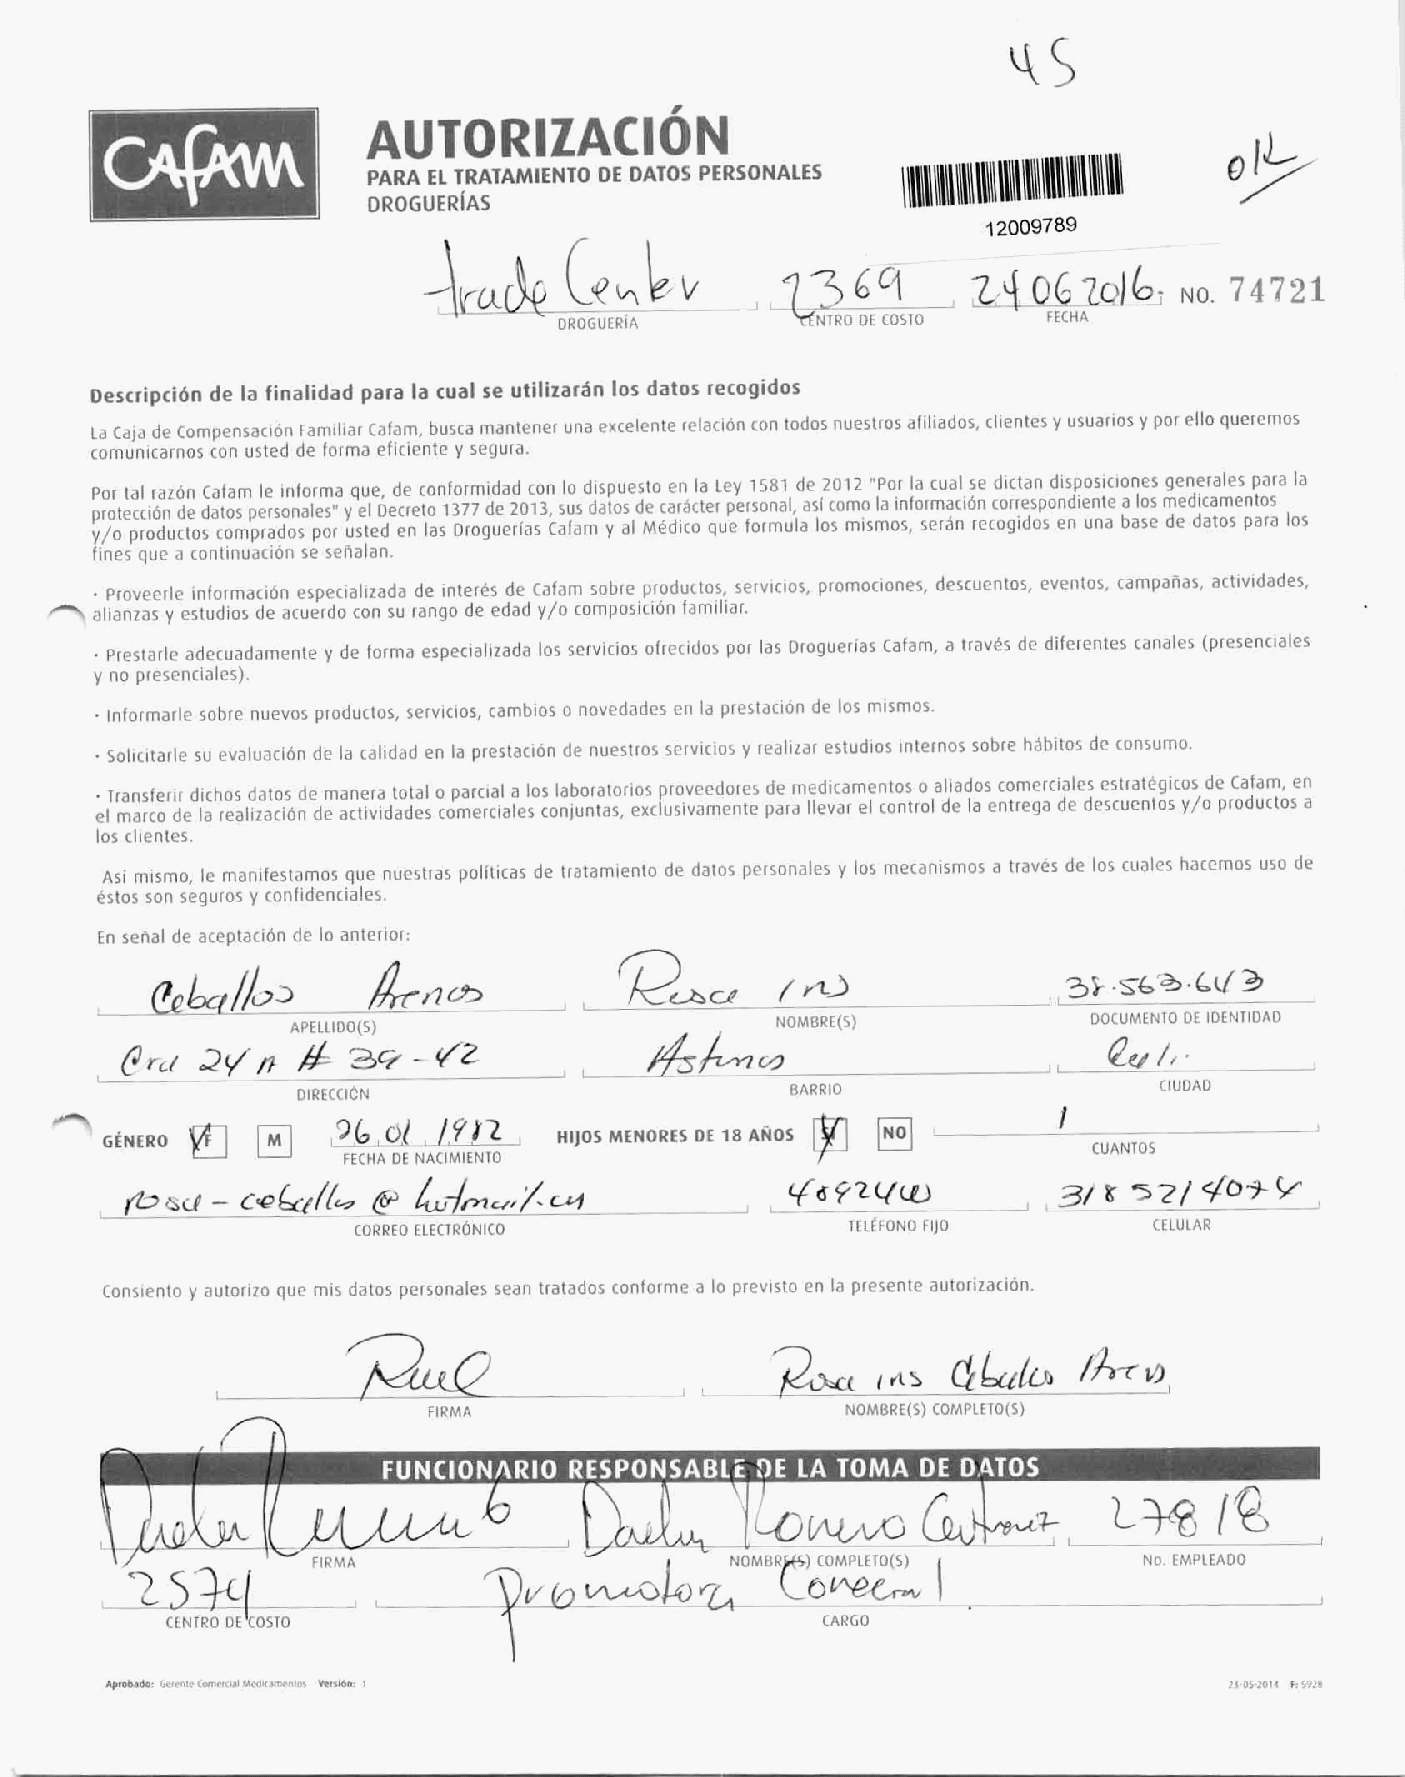 45
Cafam
AUTORIZACIÓN
PARA EL TRATAMIENTO DE DATOS PERSONALES
DROGUERÍAS
OK
12009789
trade Center 2369 24 06 2016 NO. 74721
DROGUERÍA CENTRO DE COSTO FECHA
Descripción de la finalidad para la cual se utilizarán los datos recogidos
La Caja de Compensación Familiar Cafam, busca mantener una excelente relación con todos nuestros afiliados, clientes y usuarios y por ello queremos
comunicarnos con usted de forma eficiente y segura.
Por tal razón Cafam le informa que, de conformidad con lo dispuesto en la Ley 1581 de 2012 "Por la cual se dictan disposiciones generales para la
protección de datos personales" y el Decreto 1377 de 2013, sus datos de carácter personal, así como la información correspondiente a los medicamentos
y/o productos comprados por usted en las Droguerías Cafam y al Médico que formula los mismos, serán recogidos en una base de datos para los
fines que a continuación se señalan.
· Proveerle información especializada de interés de Cafam sobre productos, servicios, promociones, descuentos, eventos, campañas, actividades,
alianzas y estudios de acuerdo con su rango de edad y/o composición familiar.
· Prestarle adecuadamente y de forma especializada los servicios ofrecidos por las Droguerías Cafam, a través de diferentes canales (presenciales
y no presenciales).
· Informarle sobre nuevos productos, servicios, cambios o novedades en la prestación de los mismos.
· Solicitarle su evaluación de la calidad en la prestación de nuestros servicios y realizar estudios internos sobre hábitos de consumo.
· Transferir dichos datos de manera total o parcial a los laboratorios proveedores de medicamentos o aliados comerciales estratégicos de Cafam, en
el marco de la realización de actividades comerciales conjuntas, exclusivamente para llevar el control de la entrega de descuentos y/o productos a
los clientes.
Así mismo, le manifestamos que nuestras políticas de tratamiento de datos personales y los mecanismos a través de los cuales hacemos uso de
éstos son seguros y confidenciales.
En señal de aceptación de lo anterior:
Ceballos Arenas Rosa Ins 38.563.643
APELLIDO(S) NOMBRE(S) DOCUMENTO DE IDENTIDAD
Cra 24 A # 39-42 Cali
DIRECCIÓN BARRIO CIUDAD
GÉNERO F M 26 01 1982 HIJOS MENORES DE 18 AÑOS NO 1
FECHA DE NACIMIENTO CUANTOS
rosa-ceballos@hotmail.com 3185214074
CORREO ELECTRÓNICO TELÉFONO FIJO CELULAR
Consiento y autorizo que mis datos personales sean tratados conforme a lo previsto en la presente autorización.
Rosa ins Ceballos Arenas
FIRMA NOMBRE(S) COMPLETO(S)
FUNCIONARIO RESPONSABLE DE LA TOMA DE DATOS
Romero 27818
FIRMA NOMBRE(S) COMPLETO(S) NO. EMPLEADO
2574 Promotora
CENTRO DE COSTO CARGO
Aprobado: Gerente Comercial Medicamentos Versión: 1 23-05-2014 F: 5928